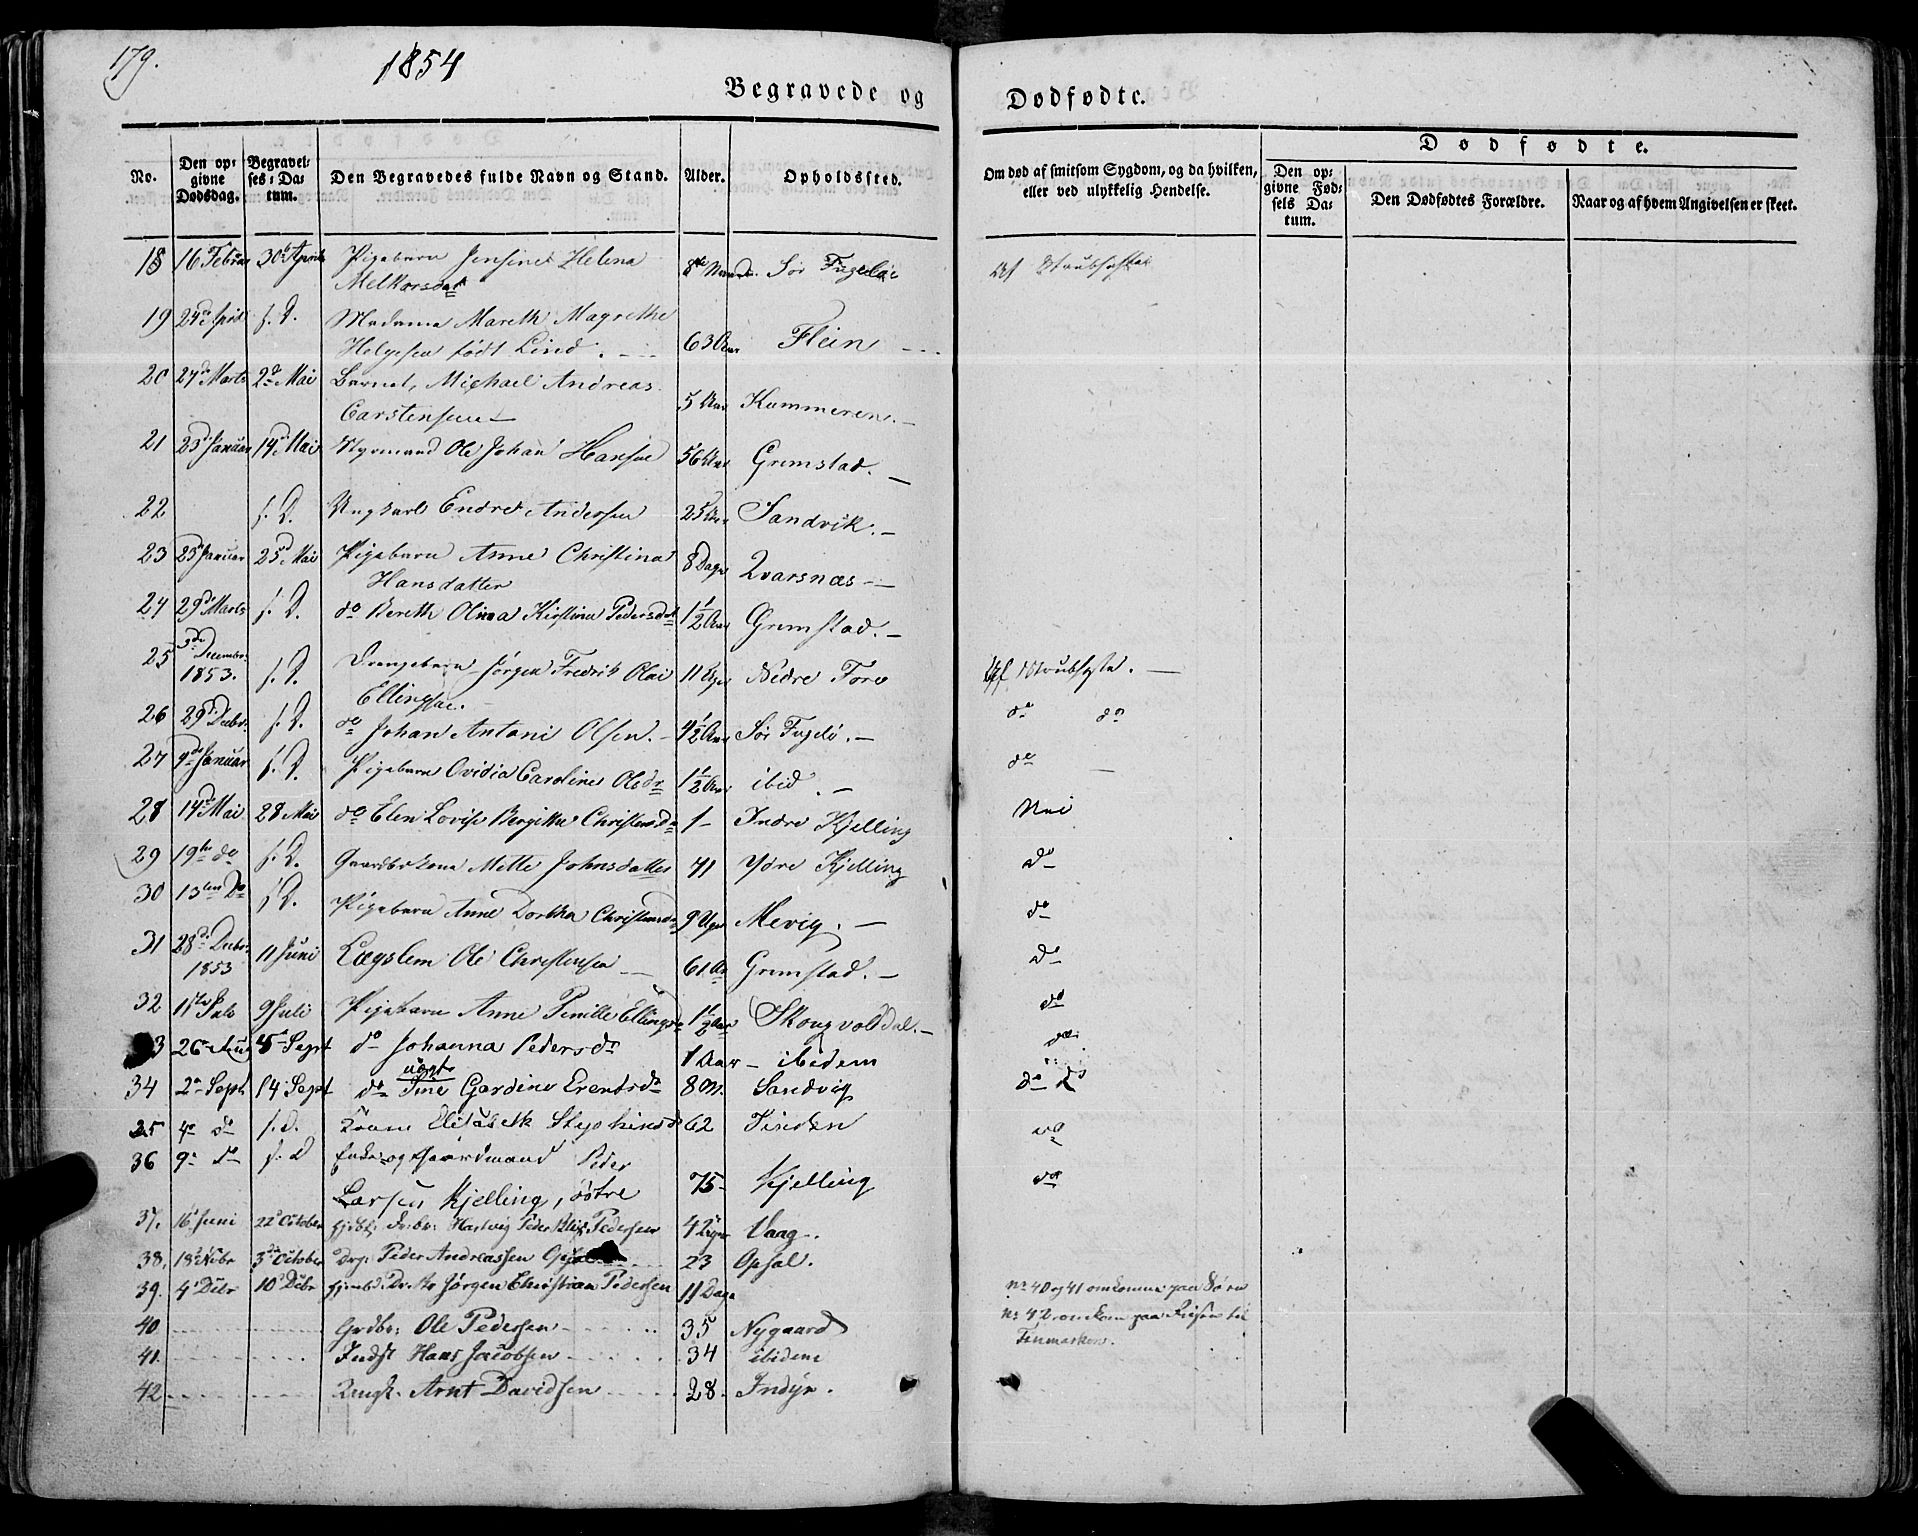 179.
1854
Begravede og
Dødfødte.
No.
Den op-
givne
Dødsdag.
Begravel-
ses-Da-
tum.
Den Begravedes fulde Navn og Stand.
Alder.
Opholdssted.
Om død af smitsom Sygdom, og da hvilken,
eller ved ulykkelig Hendelse.
Dødfødte.
Den op-
givne Fød-
sels Da-
tum.
Den Dødfødtes Forældre.
Naar og af hvem Angivelsen er skeet.
18 16 Februar 30 April Pigebarn Jensine Helena
Melkorsdat Sør Fugeløe Af Strubehoste
19 24de April s. D. Madame Mareth Magrethe
Helgesen født Lind. 63 Aar Flein
20 27de Marts 2de Mai Barnet, Michael Andreas
Carstensen 5 Aar Kummeren.
21 23d Januar 14d Mai Styrmand Ole Johan Hansen 56 Aar Grimstad.
22 s. D. Ungkarl Endre Andersen 25 Aar Sandvik.
23 25d Januar 25d Mai Pigebarn Anne Christina
Hansdatter 8 Dage Qvarsnæs
24 29d Marts s. D. do Bereth Olina Kirstina Pedersdat 1½ Aar Grimstad.
25 3de Decembr.
1853. s. D. Drengebarn Jörgen Fredrik Olai
Ellingsen. 11 Uger Nedre Fore Af Strubesyge.
26 29d Decbr. s. D. do Johan Antoni Olsen. 4½ Aar Sør Fugelö. do do
27 9de Januar s. D. Pigebarn Ovidia Caroline Olsdr 1½ Aar ibid. do
28 14d Mai 28 Mai do Elen Lovise Bergitte Christensd 1 Indre Kjelling Nei
29 19de do s. D. Gaardbrkone Mette Johnsdatter 71 Ydre Kjelling do
30 13ten do s. D. Pigebarn Anne Dorthea Christensd 9 Uger Mevig. do
31 28d Decbr.
1853 11 Juni Lægslem Ole Christensen 61 Aar Grimstad. do
32 11te Juli 9 Juli Pigebarn Anne Pernille Ellingsd 1½ Aar Skougvolddal. do
33 26 Aug 5 Sept do Johanna Pedersd 1 Aar ibidem do
uægte
34 2 Sept 14 Sept do Gardine Erentsd 8 M. Sandvig do
35 4 do s. D. Elisabeth 62 Tinden do
36 9 do s. D Enke og Gaardmand Peder
Larsen Kjelling, østre 75 Kjelling do
37. 16 Juni 22 October Hartvig Peder Pedersen 4 Uger Vaag.
38. 18 Nbr 3d October Drg: Peder Andreassen Opsal 23 Opsal.
39. 4 Debr 10 Debr Jörgen Christian Pedersen 11 Dage
40 Grdbr: Ole Pedersen 35 Nygaard
41. Indst Hans Jacobsen 34 ibidem
42 Ungk. Arnt Davidsen 28. Indyr.
No 40 og 41 omkomne paa Søen
No 42 omkom paa Reisen til
Finmarken.